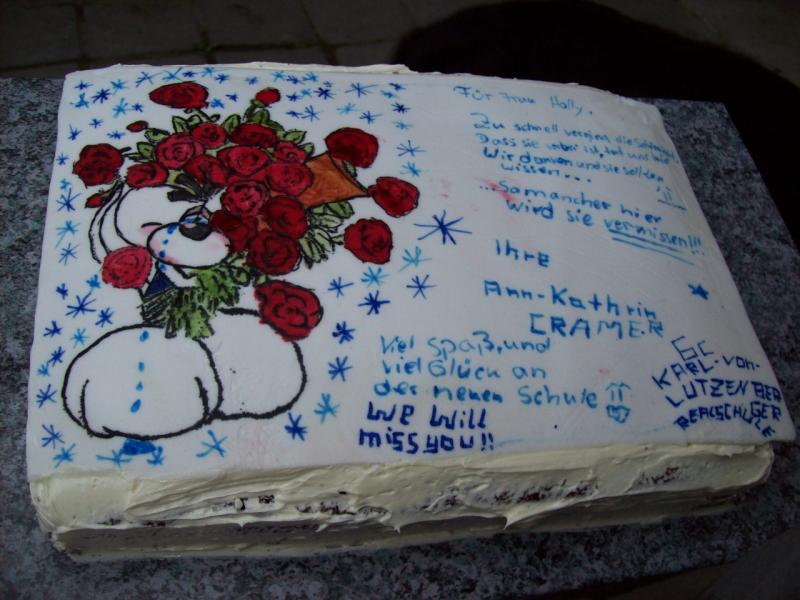 Für Frau Holly,
Zu schnell verging die Schulzeit,
Dass sie vorbei ist, tut uns leid
Wir danken und sie sollten
wissen...
...So mancher hier
wird sie vermissen!!!
Ihre
Ann-Kathrin
CRAMER
Viel Spaß, und
viel Glück an
der neuen Schule
We Will
miss you!!
6c
KARL-VON-
LUTZENBERGER
REALSCHULE